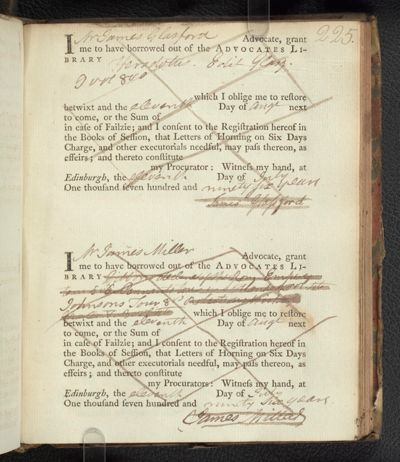 225.
I Mr James Glasford Advocate, grant
me to have borrowed out of the ADVOCATES LI-
BRARY Herodotus. Edit Glasg.
9 vol 8vo
which I oblige me to reſtore
betwixt and the eleventh Day of Augt next
to come, or the Sum of
in caſe of Failzie; and I conſent to the Regiſtration hereof in
the Books of Seſſion, that Letters of Horning on Six Days
Charge, and other executorials needful, may paſs thereon, as
effeirs; and thereto conſtitute
my Procurator: Witneſs my hand, at
Edinburgh, the eleventh Day of July
One thouſand ſeven hundred and ninety six years
James Glassford
I Mr James Miller Advocate, grant
me to have borrowed out of the ADVOCATES LI-
BRARY
Johnsons Tour 8vo
which I oblige me to reſtore
betwixt and the eleventh Day of Augt next
to come, or the Sum of
in caſe of Failzie; and I conſent to the Regiſtration hereof in
the Books of Seſſion, that Letters of Horning on Six Days
Charge, and other executorials needful, may paſs thereon, as
effeirs; and thereto conſtitute
my Procurator: Witneſs my hand, at
Edinburgh, the eleventh Day of July
One thouſand ſeven hundred and ninety six years
James Miller